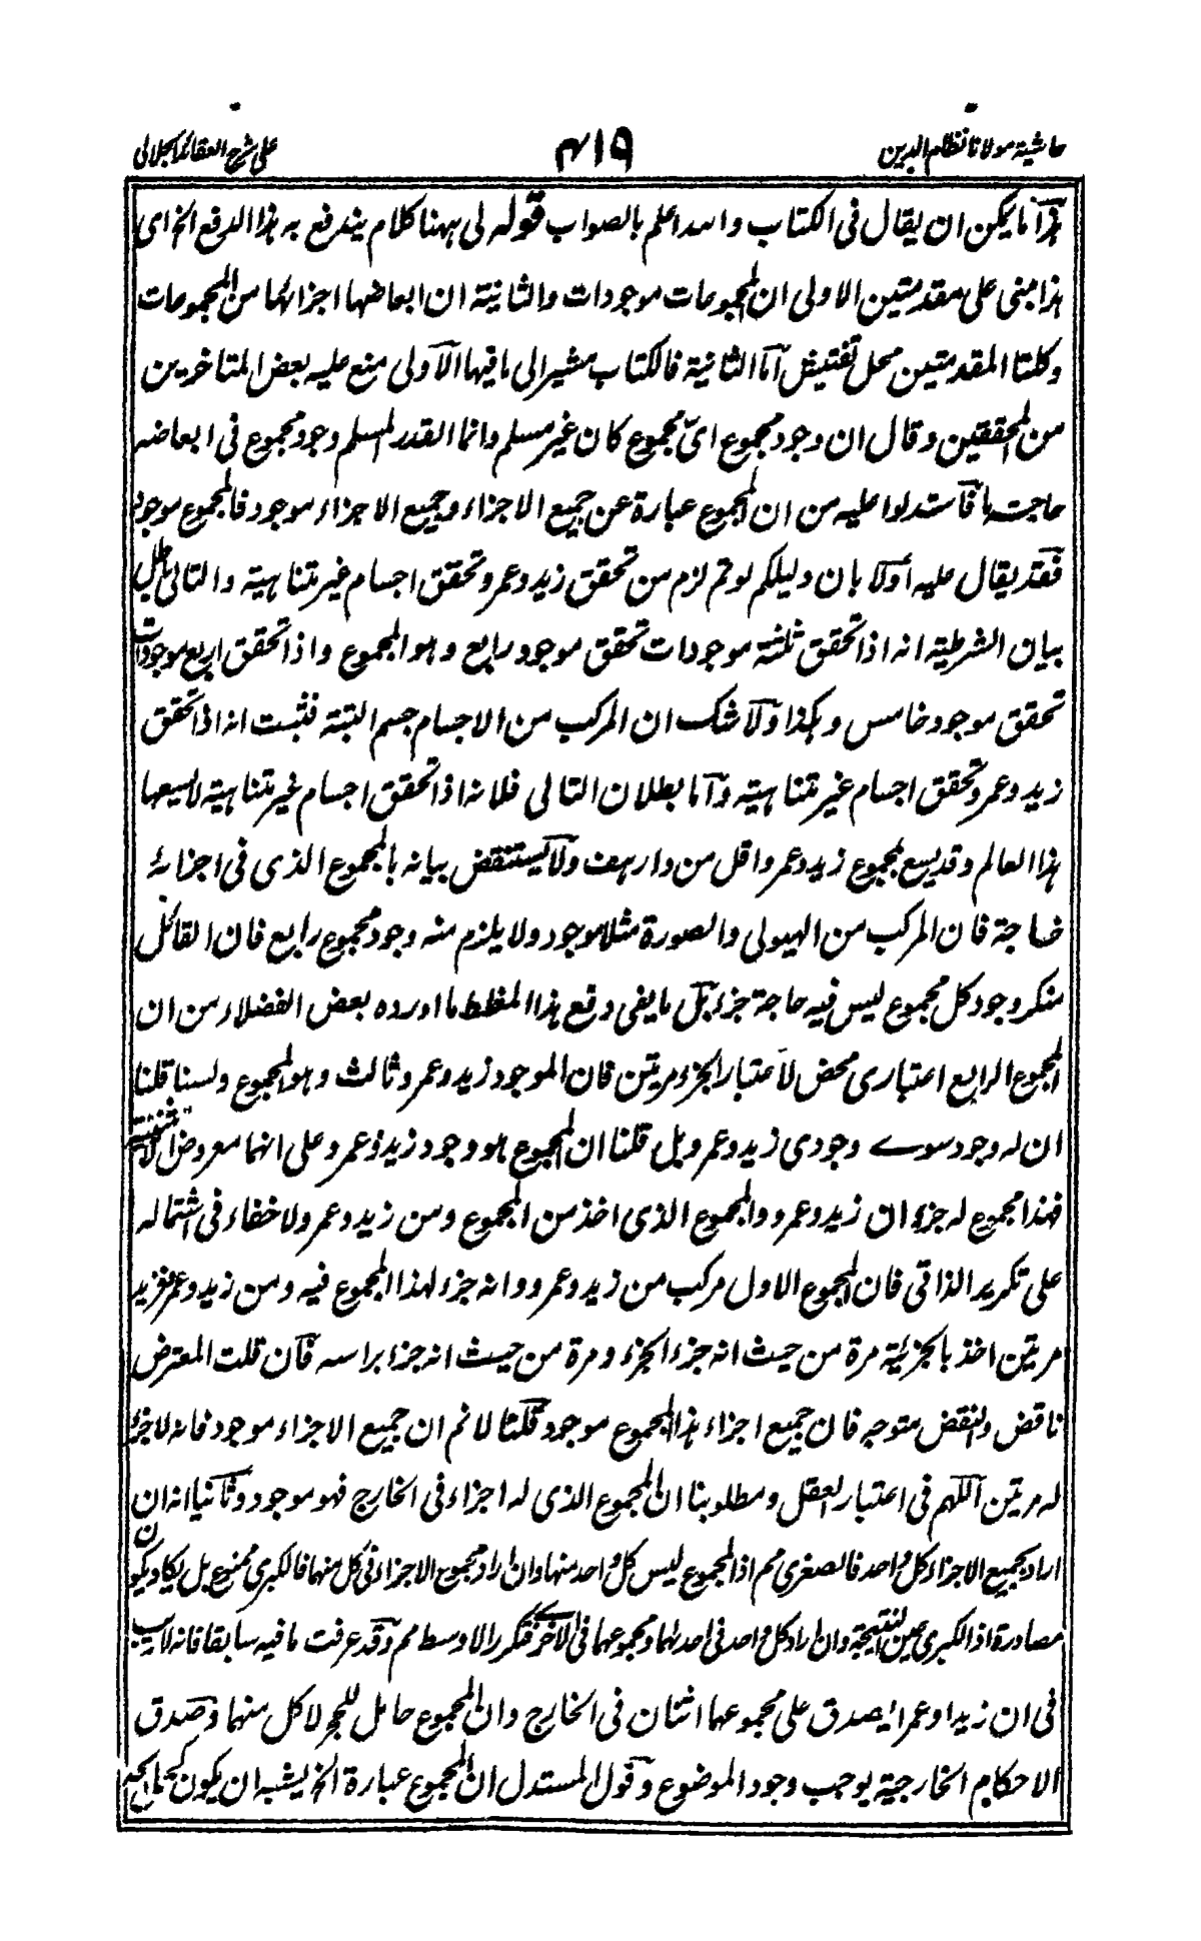 حاشية مولانا نظام الدين
٤١٩
على شرح العقائد الجلالى
هذا ما يمكن ان يقال فى الكتاب والله اعلم بالصواب قوله لى ههنا كلام يندفع به هذا الدفع الخ اى
هذا مبنى على مقدمتين الاولى ان المجموعات موجودات والثانية ان ابعاضها اجزا لها من المجموعات
وكلتا المقدمتين محل تفتيش اما الثانية فالكتاب مشير الى ما فيها الاولى منع عليه بعض المتاخرين
من المحققين وقال ان وجود مجموع اى مجموع كان غير مسلم وانما القدر المسلم وجود مجموع فى ابعاضه
حاجت ما فاستدلوا عليه من ان المجموع عبارة عن جميع الاجزاء وجميع الاجزاء موجود فالمجموع موجود
فقد يقال عليه اولا بان دليلكم لو تم لزم من تحقق زيد وعمرو تحقق اجسام غير متناهية والتالى باطل
بيان الشرطية انه اذا تحقق ثلثة موجودات تحقق موجود رابع وهو المجموع واذا تحقق اربع موجودات
تحقق موجود خامس وهكذا ولا شك ان المركب من الاجسام جسم البتة فثبت انه اذا تحقق
زيد وعمرو تحقق اجسام غير متناهية واما بطلان التالى فلانه اذا تحقق اجسام غير متناهية لا يسعها
هذا العالم وقد يسع مجموع زيد وعمرو اقل من دار هف ولا يستنقض بيانه بالمجموع الذى فى اجزائه
حاجة فان المركب من الهيولى والصورة مثلا موجود ولا يلزم منه وجود مجموع رابع فان القائل
منكر وجود كل مجموع ليس فيه حاجة جزء بل ما يفى دفع هذا المغلط ما اورده بعض الفضلاء من ان
المجموع الرابع اعتبارى محض لاعتبار الجزء مرتين فان الموجود زيد وعمرو ثالث وهو المجموع ولسنا قلنا
ان له وجود سوے وجودى زيد وعمرو بل قلنا ان المجموع هو وجود زيد وعمرو على انهما معروض الاثنينية
فهذا مجموع له جزء ان زيد وعمرو والمجموع الذى اخذ من المجموع ومن زيد وعمرو لا خفاء فى اشتماله
على تكرير الذاتى فان المجموع الاول مركب من زيد وعمرو وانه جزء لهذا المجموع فيه ومن زيد وعمرو فزيد
مرتين اخذ بالجزئية مرة من حيث انه جزء الجزء ومرة من حيث انه جزء براسه فان قلت المعترض
ناقض والنقض متوجه فان جميع اجزاء هذا المجموع موجود قلنا لا نم ان جميع الاجزاء موجود فانه لا جزء
له مرتين اللهم فى اعتبار العقل ومطلوبنا ان المجموع الذى له اجزاء فى الخارج فهو موجود وثانيا انه ان
اراد بجميع الاجزاء كل واحد فالصغرى مم اذ المجموع ليس كل واحد منها وان اراد مجموع الاجزاء فى كل منهما فالكبرى ممنوع بل يكاد يكون
مصادرة اذ الكبرى عين النتيجة وان اراد كل واحد فى احدهما ومجموعها فى الاخرى فتكرر الاوسط مم وقد عرفت ما فيه سابقا فانه لا ريب
فى ان زيدا وعمرا يصدق على مجموعهما اثنان فى الخارج وان المجموع حامل للحجر لا كل منهما وصدق
الاحكام الخارجية يوجب وجود الموضوع وقول المستدل ان المجموع عبارة الخ يشبه ان يكون